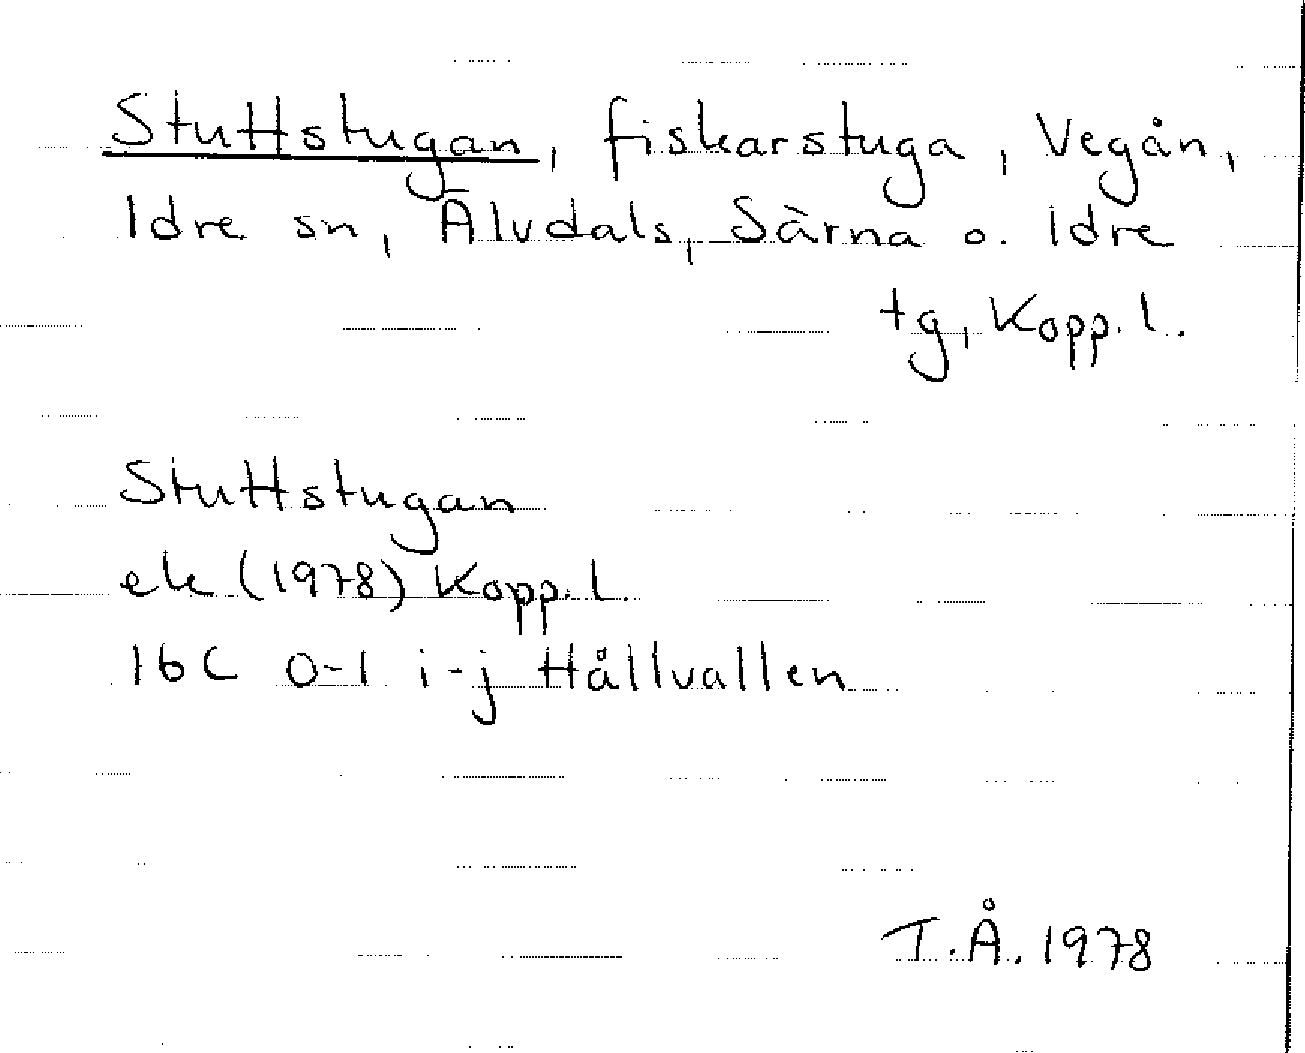 Stuttstugan, fiskarstuga, Vegån,
Idre sn, Älvdals, Särna o. Idre
tg, Kopp. l.
Stuttstugan
ek (1978) Kopp. l.
16C 0-1 i-j Hållvallen
T.Å. 1978